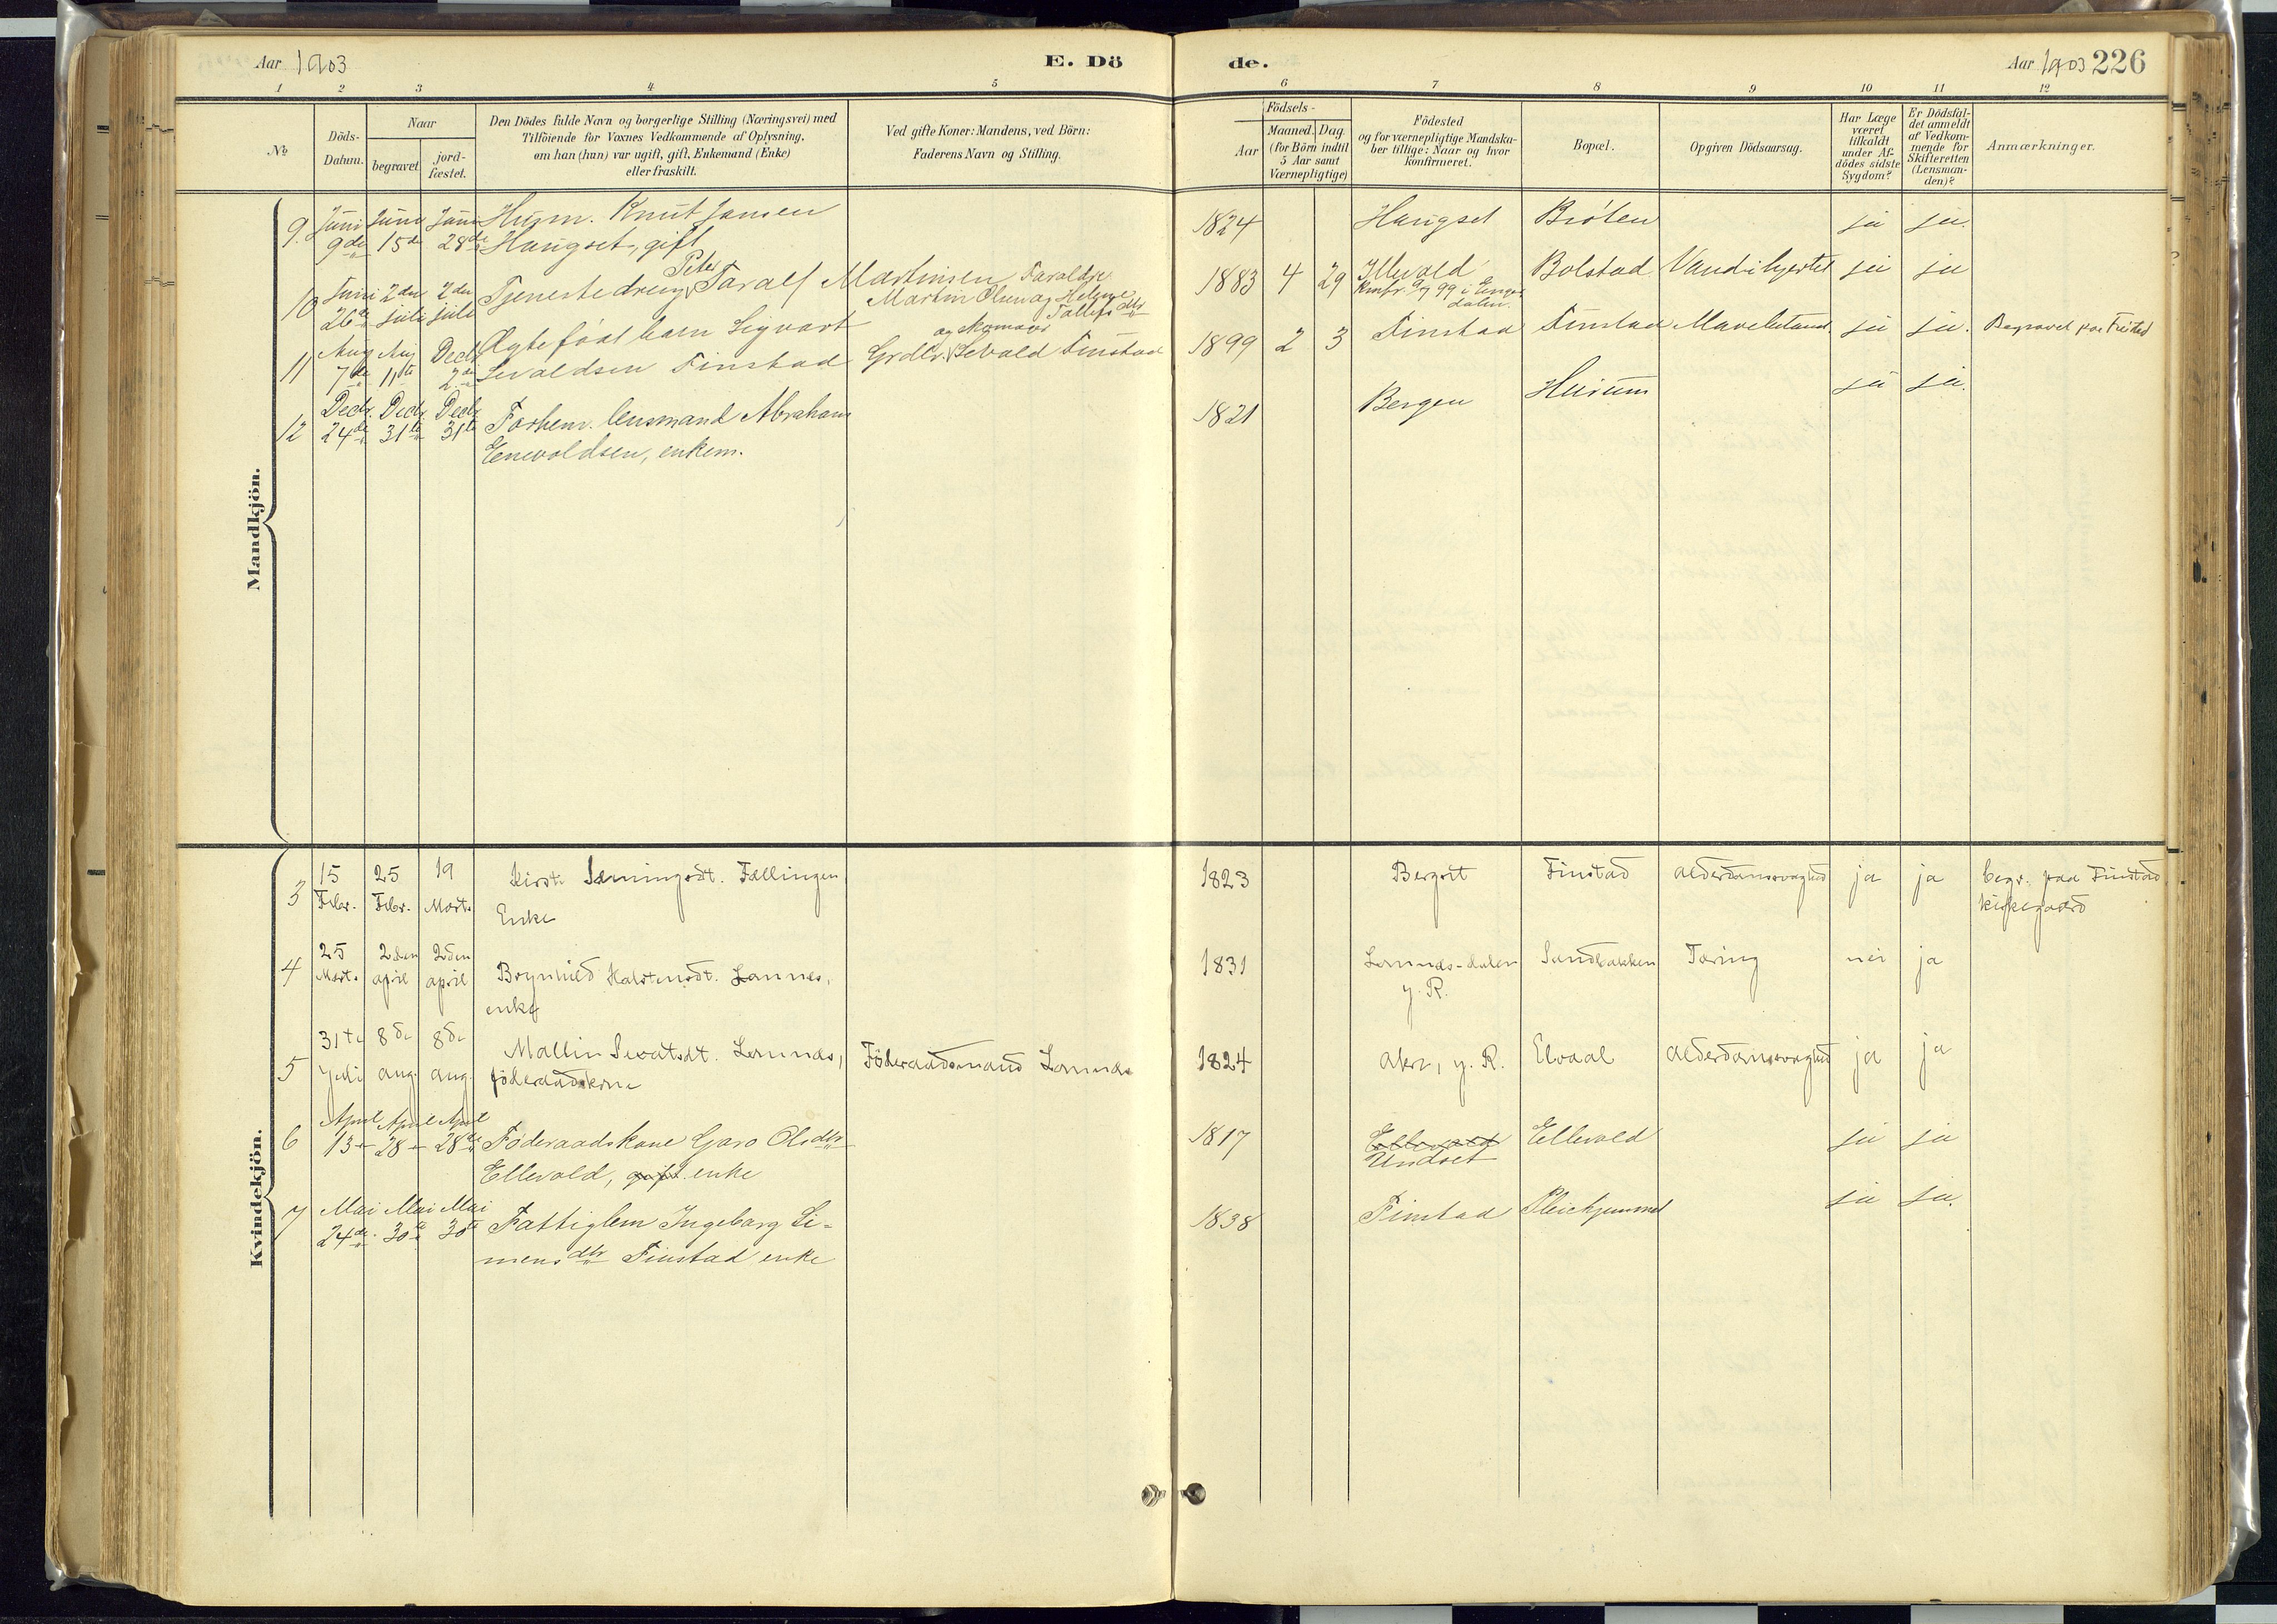 Aar 1903
E. Döde.
Aar 1903 226
1 2 3 4 5 6 7 8 9 10 11 12
№
Döds-Datum.
Naar
begravet.
jord-fæstet.
Den Dödes fulde Navn og borgerlige Stilling (Næringsvei) med
Tilföiende for Voxnes Vedkommende af Oplysning,
om han (hun) var ugift, gift, Enkemand (Enke)
eller fraskilt.
Ved gifte Koner: Mandens, ved Börn:
Faderens Navn og Stilling.
Födsels-
Aar
Maaned. Dag.
(for Börn indtil
5 Aar samt
Værnepligtige)
Födested
og for værnepligtige Mandska-
ber tillige: Naar og hvor
konfirmeret.
Bopæl.
Opgiven Dödsaarsag.
Har Læge
været
tilkaldt
under Af-
dödes sidste
Sygdom?
Er Dödsfal-
det anmeldt
af Vedkom-
mende for
Skifteretten
(Lensman-
den)?
Anmærkninger.
Mandkjön.
9. Juni 9de Juni 15de Juni 28de Husm. Knut Jansen
Haugset, gift 1824 Haugset Bröten ja ja.
10 Juni 26de 2den juli 2den juli Tjenestedreng Peter Taralf Martinsen
Martin Olsen og Helene Tollefsdtr 1883 4 29 Konfr. i Enger-
dalen. Bolstad Vand i hjertet ja ja
11 Aug 7de Aug 11te Decbr 2den Ægtefödt barn Sigvart
Sevaldsen Finstad Grdbr. Sevald Finstad 1899 2 3 Finstad Finstad ja ja. Begravet paa Finstad
12 Decbr. 24de Decbr 31te Decbr 31te Forhenv. lensmand Abraham
Enevoldsen, enkem. 1821 Bergen Husum ja ja.
Kvindekjön.
3 15 Febr. 25 Febr. 19 Marts Kirsti Sæmingsdt. Fællingen
Enke 1823 Bergset Finstad Alderdomssvaghed ja ja begr. paa Finstad
kirkegaard
4 25 Marts 2den april 2den april Brynhild Halstensdt. Lomnes,
enke 1831 Lomnes-dalen
y. R. Sandbakken Tæring nei ja
5 31te Juli 8de aug. 8de aug. Mallin Sevatsdt. Lomnes,
föderaadskone Föderaadsmand Lomnes 1824 Akre, y. R. Elvaal Alderdomssvaghed ja ja
6 April 13de April 28de April 28de Föderaadskone Goro Olsdtr
Ellevold, gift enke 1817 Ellevold
Undset Ellevold ja ja
7 Mai 24de Mai 30te Mai 30te Fattiglem Ingeborg Si-
mensdtr Finstad enke 1838 Finstad ja ja.